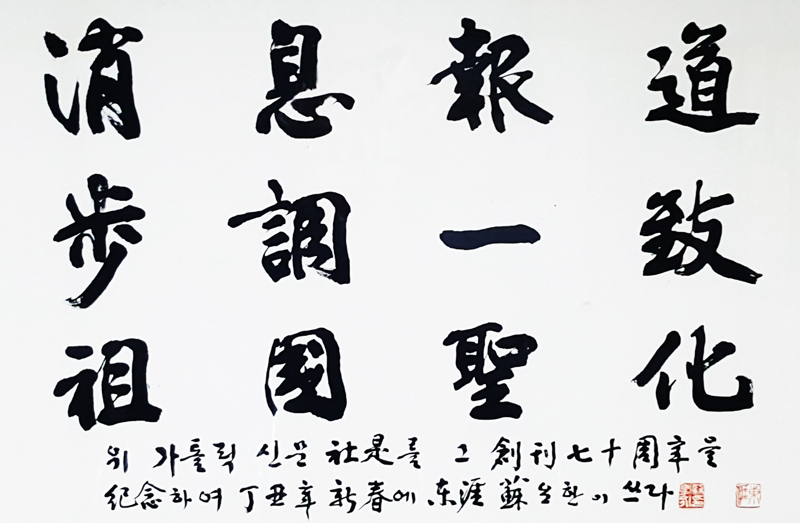 消息報道
步調一致
祖國聖化
위 가톨릭 신문 社是를 그 創刊 七十 周年을
紀念하여 丁丑年 新春에 东涯 蘇 쓰다